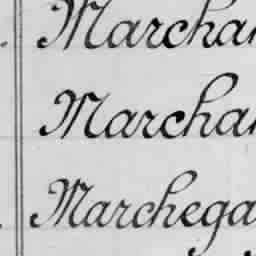 Marcha
Marcha
Marchega